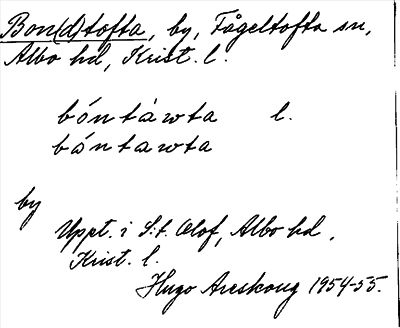 Bon(d)tofta, by, Fågeltofta sn,
Albo hd, Krist. l.
bóntàwta l.
bántawta
by
Uppt. i S:t. Olof, Albo hd.
Krist. l.
Hugo Areskoug 1954-55.